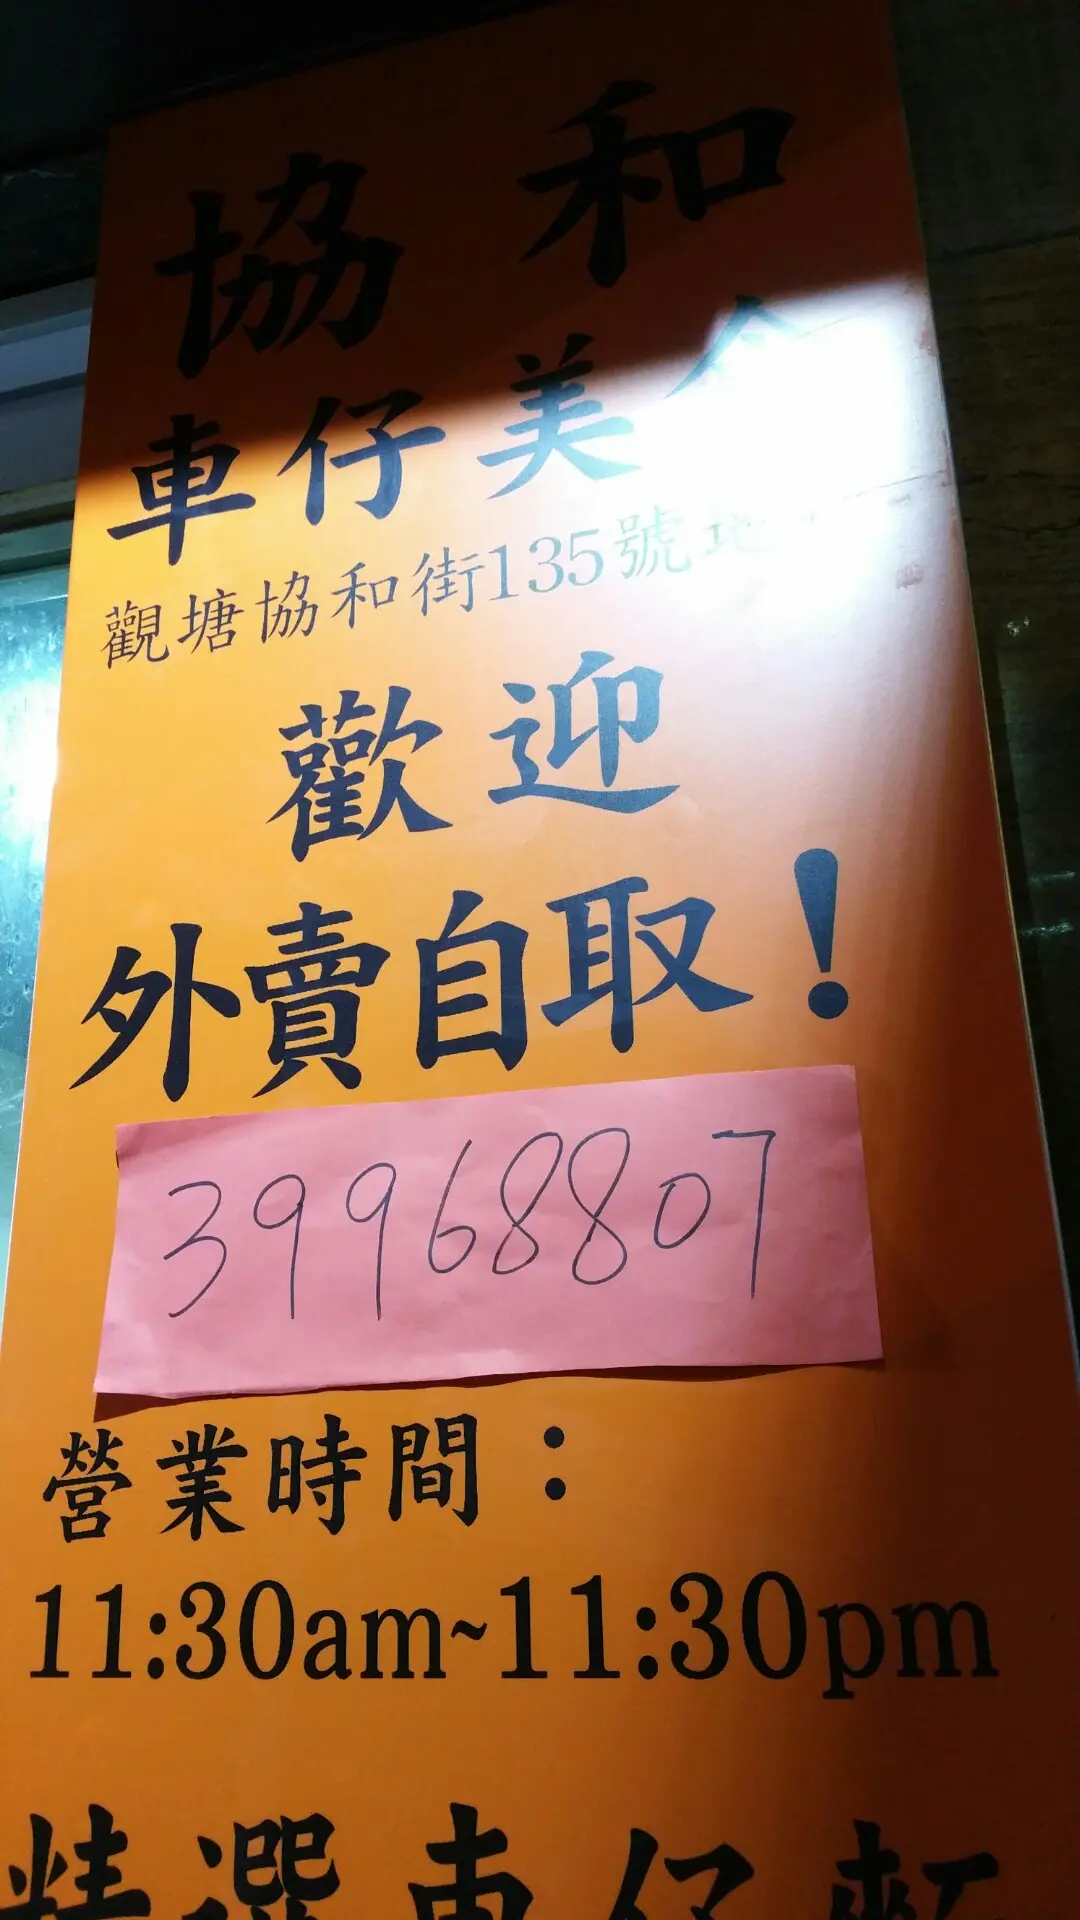 協和
車仔美食
觀塘協和街135號地
歡迎
外賣自取！
39968807
營業時間：
11:30am~11:30pm
精選車仔